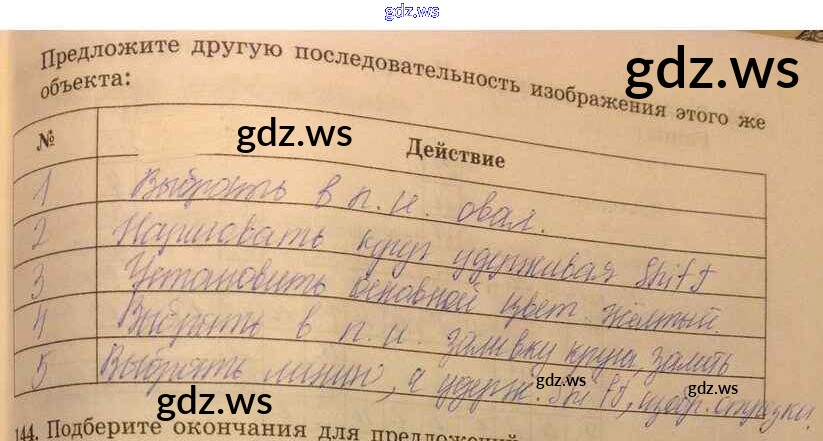 gdz.ws
Предложите другую последовательность изображения этого же
объекта:
gdz.ws
№ gdz.ws Действие
1 Выбрать в п. и. овал.
2 Нарисовать круг удерживая Shift
3 Установить основной цвет жёлтый.
4 Выбрать в п. и. заливку круга залить
5 Выбрать линии, а удерж. Shift, изобр. отрезки.
gdz.ws gdz.ws gdz.ws
144. Подберите окончания для предложений